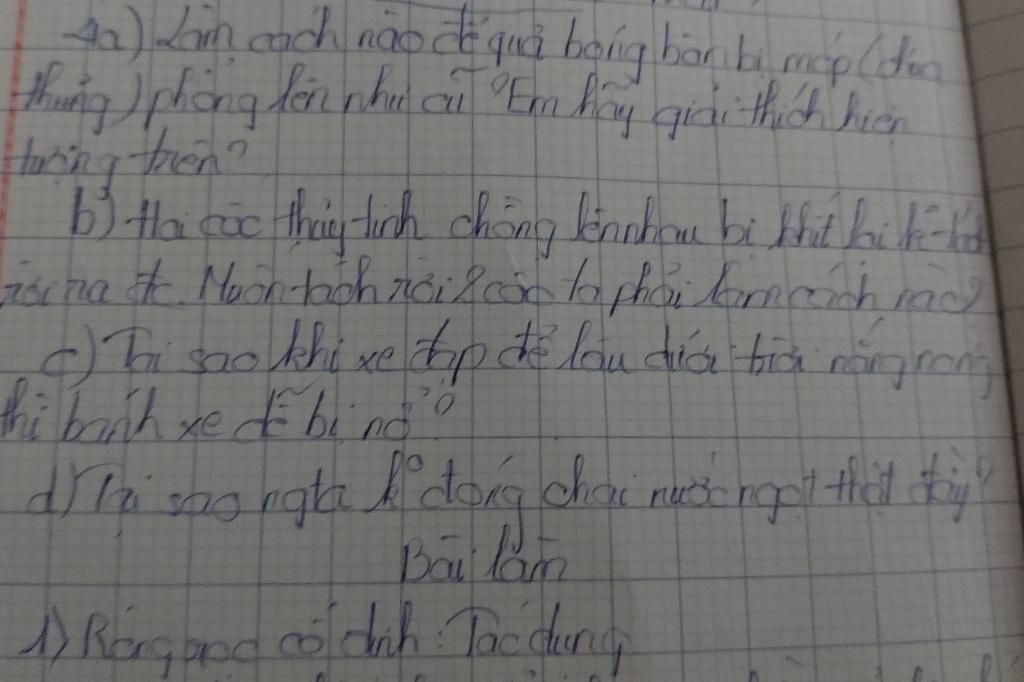 4a) Làm cách nào để quả bóng bàn bị móp (ko
thủng) phồng lên như cũ? Em hãy giải thích hiện
tượng trên?
b) Hai cốc thủy tinh chồng lên nhau bị khít lại k-
ra đc. Muốn tách rời 2 cốc ta phải làm cách nào?
c) Tại sao khi xe đạp để lâu dưới trời nắng nóng
thì bánh xe dễ bị nổ?
d) Tại sao ngta ko đóng chai nước ngọt thật đầy?
Bài làm
1) Ròng rọc cố định: Tác dụng